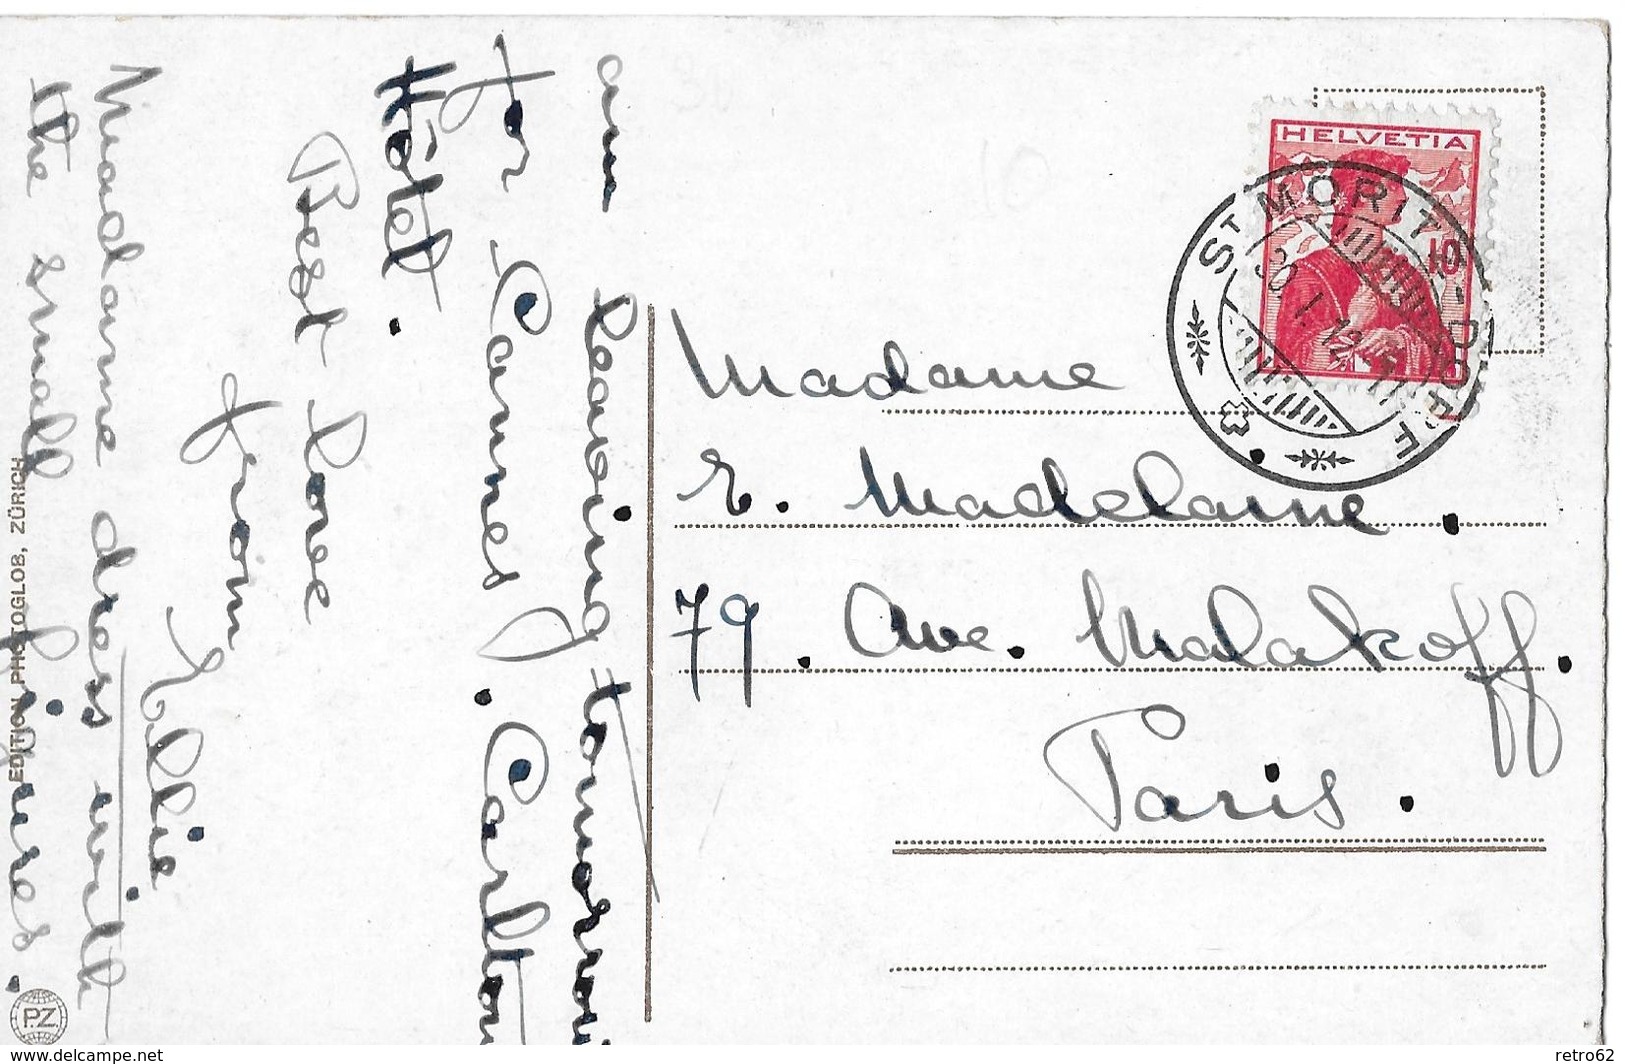 am leaving tomorrow
for Cannes. Carlton
Hôtel.
Best love
from
Ellie
Madame dress with
the small figures.
EDITION PHOTOGLOB, ZÜRICH
P.Z
HELVETIA
10
ST MORITZ-DORF
Madame
E. Madelaine.
79. Ave. Malakoff.
Paris.
www.delcampe.net
retro62